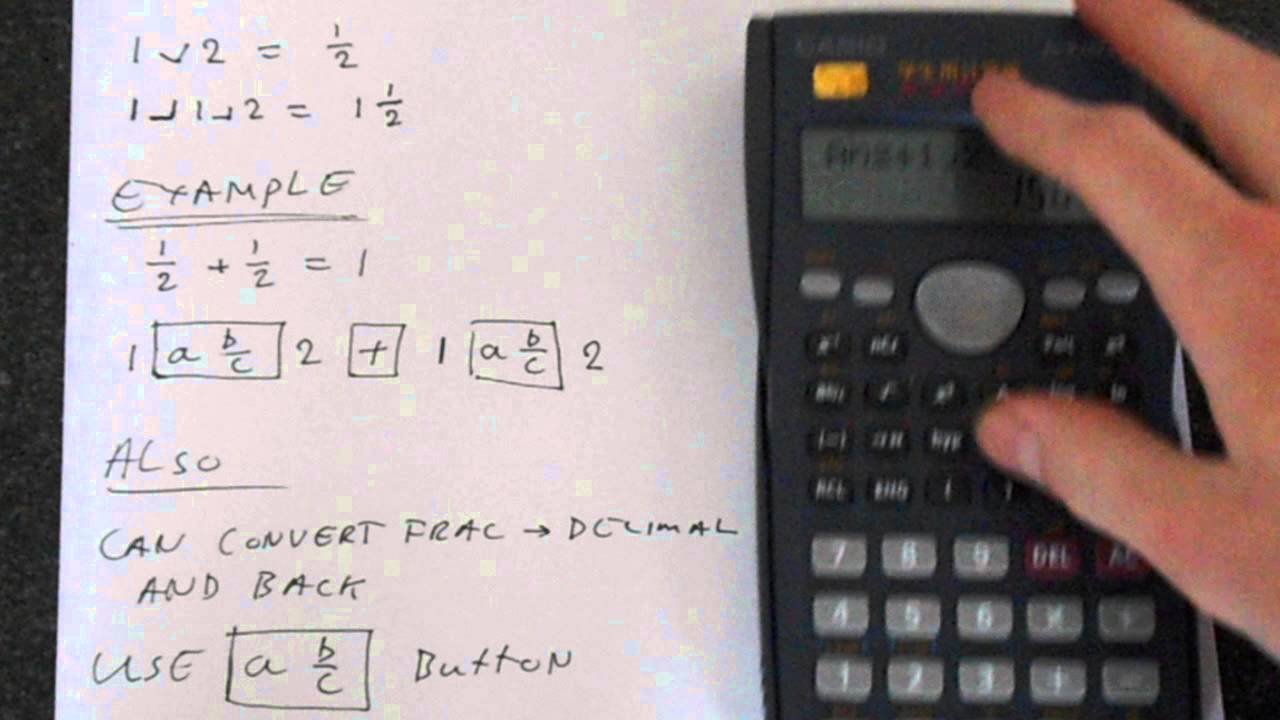 1 ⌟ 2 = 1/2
1 ⌟ 1 ⌟ 2 = 1 1/2
EXAMPLE
1/2 + 1/2 = 1
1 a b/c 2 + 1 a b/c 2
ALSO
CAN CONVERT FRAC → DECIMAL
AND BACK
USE a b/c BUTTON
CASIO
hyp
7 8 9 DEL AC
4 5 6 ×
1 2 3 + −